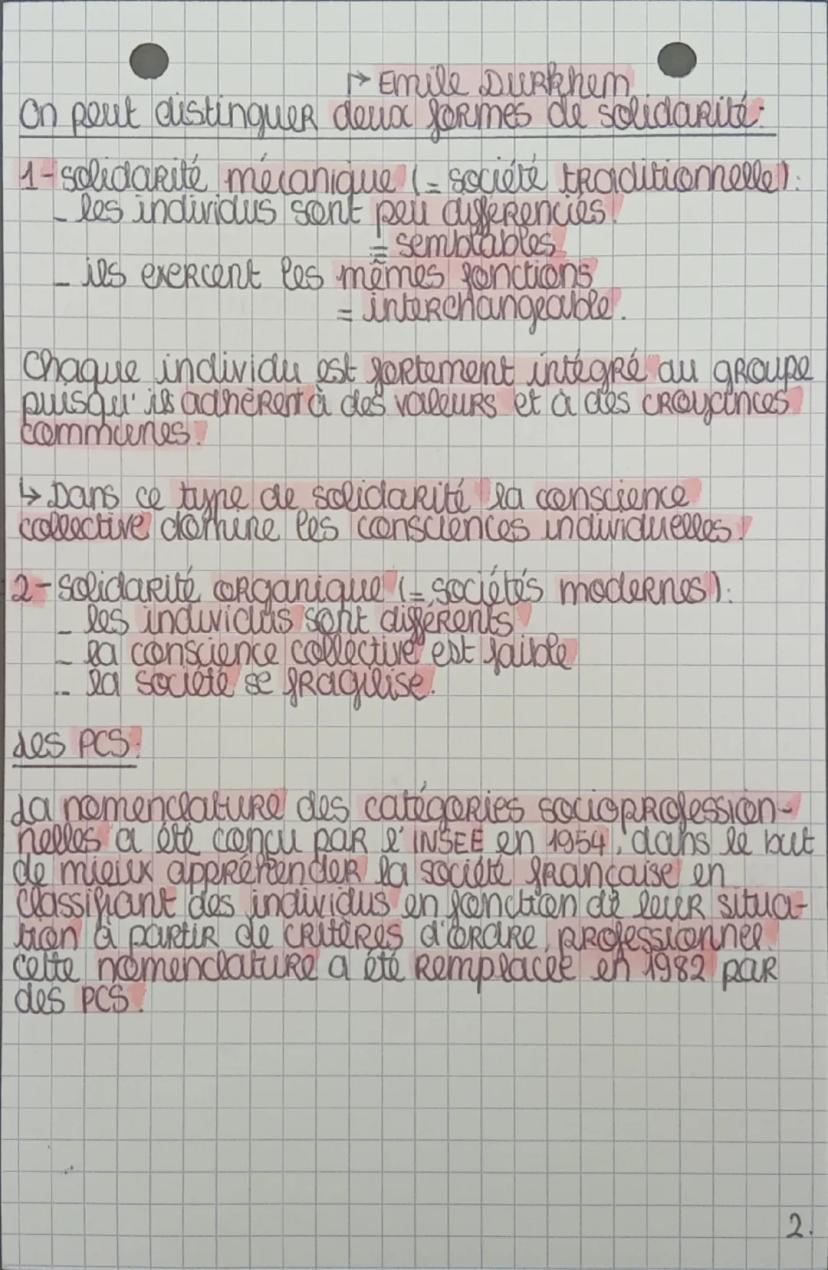 ↱ Emile DURkhem
On peut distinguer deux formes de solidarité:
1- solidarité mécanique (= société traditionnelle):
- les individus sont peu différenciés.
= semblables
- ils exercent les mêmes fonctions
= interchangeable.
Chaque individu est fortement intégré au groupe
puisqu'ils adhèrent à des valeurs et à des croyances
communes.
↳ Dans ce type de solidarité la conscience
collective domine les consciences individuelles.
2- solidarité organique (= sociétés modernes):
- les individus sont différents
- la conscience collective est faible
- la société se fragilise.
Les PCS:
La nomenclature des catégories socioprofession-
nelles a été conçu par l'INSEE en 1954, dans le but
de mieux appréhender la société française en
classifiant des individus en fonction de leur situa-
tion à partir de critères d'ordre professionnel
cette nomenclature a été remplacée en 1982 par
des PCS.
2.